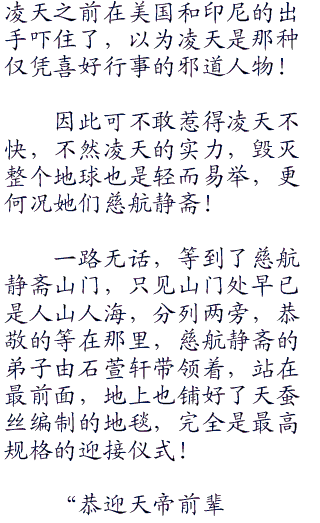 凌天之前在美国和印尼的出
手吓住了，以为凌天是那种
仅凭喜好行事的邪道人物！
因此可不敢惹得凌天不
快，不然凌天的实力，毁灭
整个地球也是轻而易举，更
何况她们慈航静斋！
一路无话，等到了慈航
静斋山门，只见山门处早已
是人山人海，分列两旁，恭
敬的等在那里，慈航静斋的
弟子由石萱轩带领着，站在
最前面，地上也铺好了天蚕
丝编制的地毯，完全是最高
规格的迎接仪式！
“恭迎天帝前辈